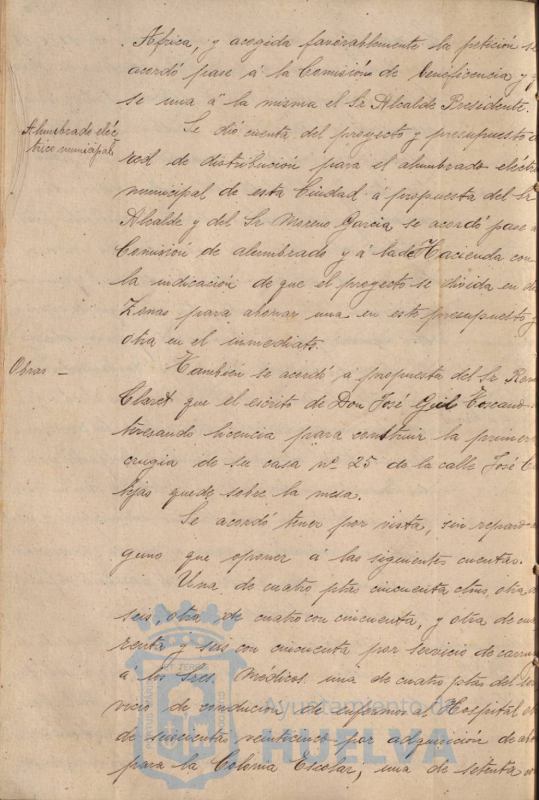 Africa, y acogida favorablemente la petición se
acordó pase á la Comisión de Beneficencia y q
se una á la misma el Sr Alcalde Presidente.
Alumbrado eléc
trico municipal
Se dió cuenta del proyecto y presupuesto d
red de distribución para el alumbrado eléctri
municipal de esta Ciudad á propuesta del Sr
Alcalde y del Sr Moreno Garcia, se acordó pase a
Comisión de alumbrado y á la de Hacienda con
la indicación de que el proyecto se divida en do
Zonas para abonar una en este presupuesto y
otra en el inmediato.
Obras —
Tambien se acordó á propuesta del Sr
Claret que el escrito de Don José Gil Toscano
teresando licencia para construir la primer
crugia de su casa nº 25 de la calle José Ca
llejas quede sobre la mesa.
Se acordó tener por vista, sin reparo
guno que oponer á las siguientes cuentas.
Una de cuatro ptas cincuenta ctms, otra d
seis, otra de cuatro con cincuenta, y otra de cua
renta y seis con cincuenta por servicio de carrua
a los Sres. Médicos. una de cuatro ptas del ser
vicio de conducion de enfermos al Hospital
de veinticinco por adquisición de
para la Colonia Escolar, una de setenta
Ayuntamiento de
HUELVA